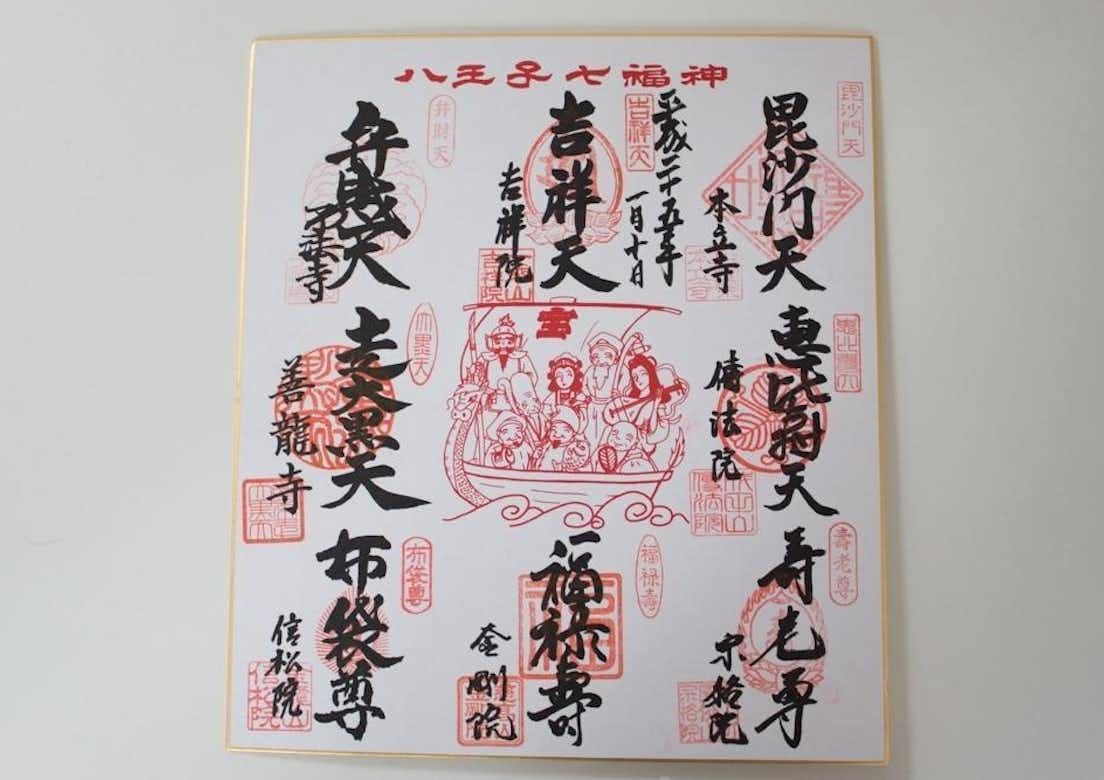 八王子七福神
毘沙門天
毘沙門天
本立寺
平成二十五年
一月十日
吉祥天
吉祥天
吉祥院
弁財天
弁財天
了法寺
恵比寿天
傳法院
宝
大黒天
走大黒天
善龍寺
壽老尊
寿老尊
宗格院
福禄壽
福禄寿
金剛院
布袋尊
布袋尊
信松院